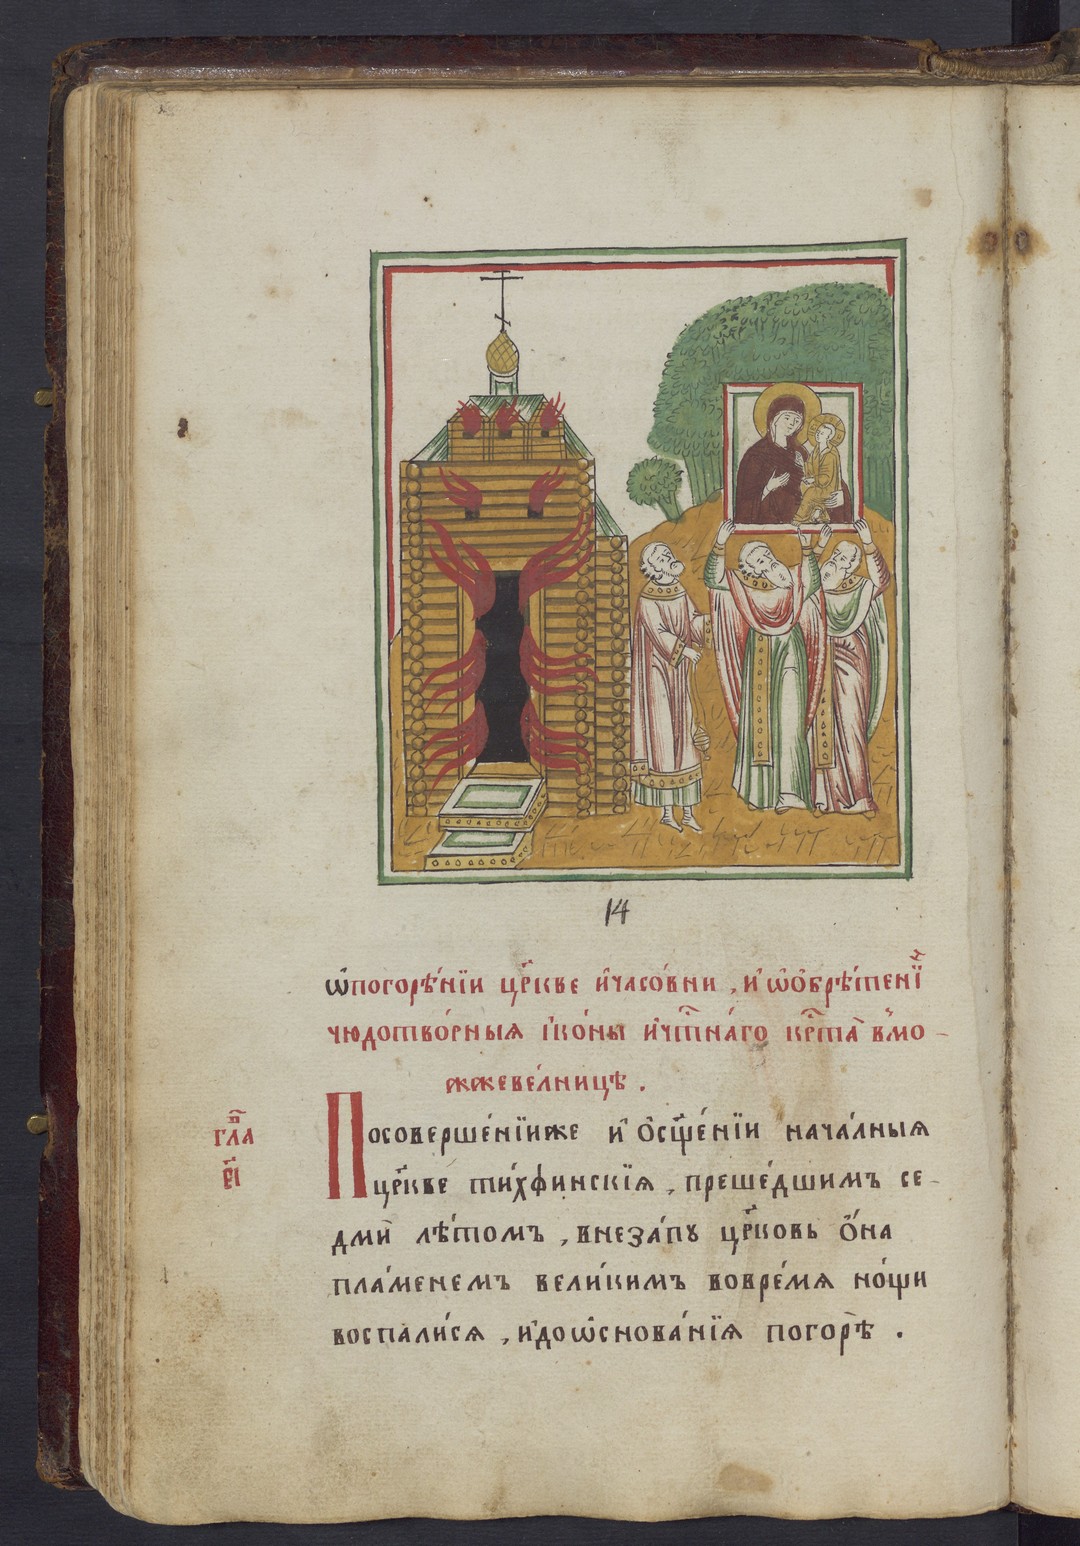 14
Ѡпогорѣ́нїи цр҃кве и҆часо́вни , и҆ ѡ҆ѡбрѣ́тенїи
чюдотво́рныя і҆ко́ны и҆чтⷭ҇на́го крⷭ҇та̀ вмо-
жжеве́лницѣ .
гла҃в
в҃і
Посоверше́нїиже и҆ ѻ҆сщ҃е́нїи нача́лныя
цр҃кве ти́хфинскїя , преше́дшимъ се-
дми̑ лѣ́томъ , внеза́пу цр҃ковь ѻ҆́на
пла́менемъ вели́кимъ вовре́мя но́щи
воспали́ся , и҆доѡ҆снова́нїя погорѣ̀ .